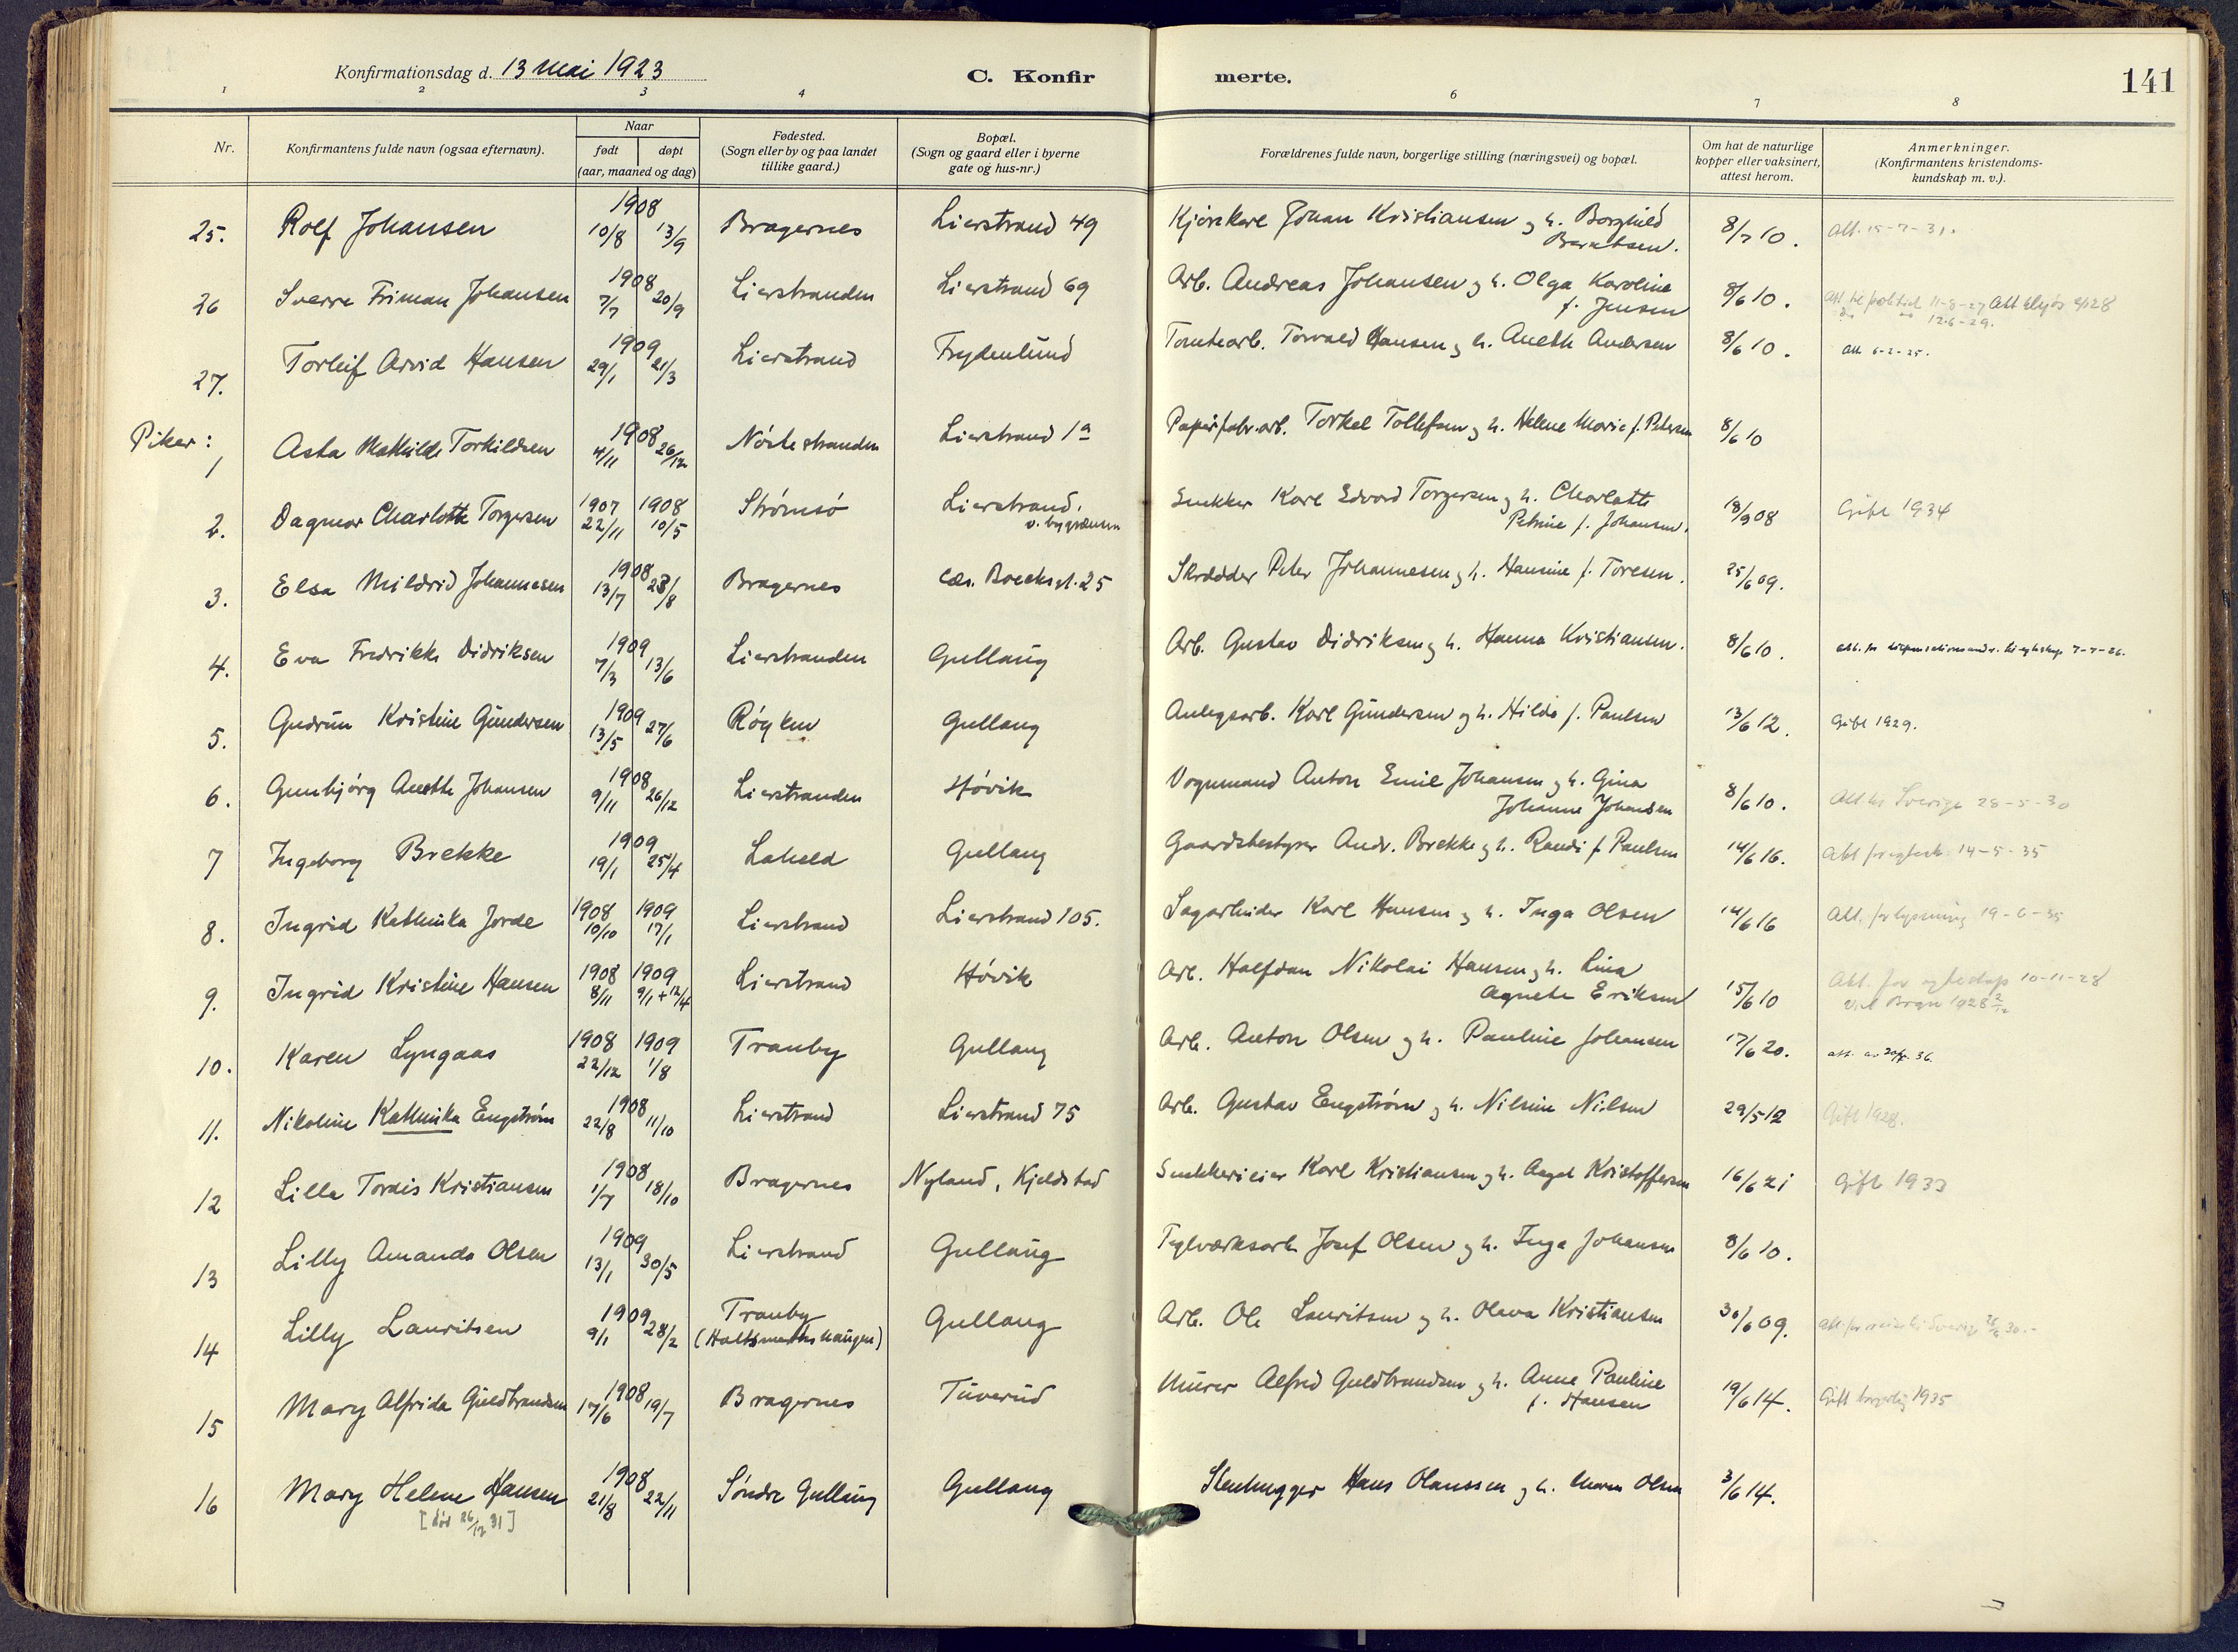 Konfirmationsdag d. 13 mai 1923
C. Konfirmerte.
141
1 2 3 4 6 7 8
Nr.
Konfirmantens fulde navn (ogsaa efternavn).
Naar
født døpt
(aar, maaned og dag)
Fødested.
(Sogn eller by og paa landet
tillike gaard.)
Bopæl.
(Sogn og gaard eller i byerne
gate og hus-nr.)
Forældrenes fulde navn, borgerlige stilling (næringsvei) og bopæl.
Om hat de naturlige
kopper eller vaksinert,
attest herom.
Anmerkninger.
(Konfirmantens kristendoms-
kundskap m. v.).
25. Rolf Johansen 1908 10/8 13/9 Bragernes Lierstrand 49 Kjørekarl Johan Kristiansen og h. Borghild Berntsen. 8/7 10. Att. 15-7-31.
26 Sverre Friman Johansen 1908 7/7 20/9 Lierstranden Lierstrand 69 Arb. Andreas Johansen og h. Olga Karoline f. Jensen 8/6 10. 11-8-27 12-6-29.
27. Torleif Arvid Hansen 1909 29/1 21/3 Lierstrand Frydenlund Tomtearb. Torvald Hansen og h. Anethe Andersen 8/6 10. Att 6-2-25.
Piker:
1 Asta Mathilde Torkildsen 1908 4/11 26/12 Nøstestranden Lierstrand 1a Papirfabr.arb. Torkel Tollefsen og h. Helene Marie f. Petersen 8/6 10
2. Dagmar Charlotte Torgersen 1907 22/11 1908 10/5 Strømsø Lierstrand. v. bygrænsen Snekker Karl Edvard Torgersen og h. Charlotte Petrine f. Johansen. 18/9 08 Gift 1934
3. Elsa Mildrid Johannesen 1908 13/7 23/8 Bragernes Cæs. Boecks gt. 25 Skrædder Peter Johannesen og h. Hansine f. Toresen. 25/6 09.
4. Eva Fredrikke Didriksen 1909 7/3 13/6 Lierstranden Gullaug Arb. Gustav Didriksen og h. Hanna Kristiansen. 8/6 10. 7-7-26.
5. Gudrun Kristine Gundersen 1909 13/5 27/6 Røyken Gullaug Anlegsarb. Karl Gundersen og h. Hilda f. Paulsen 13/6 12. Gift 1929.
6. Gunbjørg Anethe Johansen 1908 9/11 26/12 Lierstranden Høvik Vognmand Anton Emil Johansen og h. Gina Johanne Johansen 8/6 10. Att. til Sverige 28-5-30
7 Ingeborg Brekke 1909 19/1 25/4 Lahell Gullaug Gaardsbestyrer Andr. Brekke og h. Randi f. Paulsen 14/6 16. Att 14-5-35
8. Ingrid Kathinka Jorde 1908 10/10 1909 17/1 Lierstrand Lierstrand 105. Sagarbeider Karl Hansen og h. Inga Olsen 14/6 16 Att. for lysning 19-6-35
9. Ingrid Kristine Hansen 1908 8/11 1909 9/1 + 12/4 Lierstrand Høvik Arb. Halfdan Nikolai Hansen og h. Lina Agnete Eriksen 15/6 10 Att. for egteskap 10-11-28 1928
10. Karen Lyngaas 1908 22/12 1909 1/8 Tranby Gullaug Arb. Anton Olsen og h. Pauline Johansen 17/6 20. 36.
11. Nikoline Kathinka Engstrøm 1908 22/8 11/10 Lierstrand Lierstrand 75 Arb. Gustav Engstrøm og h. Nilsine Nilsen 29/5 12 Gift 1928.
12 Lilla Tordis Kristiansen 1908 1/7 18/10 Bragernes Nyland, Kjeldstad Snekkerieier Karl Kristiansen og h. Aagot Kristoffersen 16/6 21 Gift 1933
13 Lilly Amanda Olsen 1909 13/1 30/5 Lierstrand Gullaug Teglværksarb. Josef Olsen og h. Inga Johansen 8/6 10.
14 Lilly Lauritsen 1909 9/1 28/2 Tranby Gullaug Arb. Ole Lauritsen og h. Olava Kristiansen 30/6 09.
15 Mary Alfrida Guldbrandsen 1908 17/6 19/7 Bragernes Tuverud Murer Alfred Guldbrandsen og h. Anne Pauline f. Hansen 19/6 14. Gift borgerlig 1935
16 Mary Helene Hansen 1908 21/8 22/11 Søndre Gullaug Gullaug Stenhugger Hans Olaussen og h. Maren Olsen 3/6 14.
[død 26/12 31]